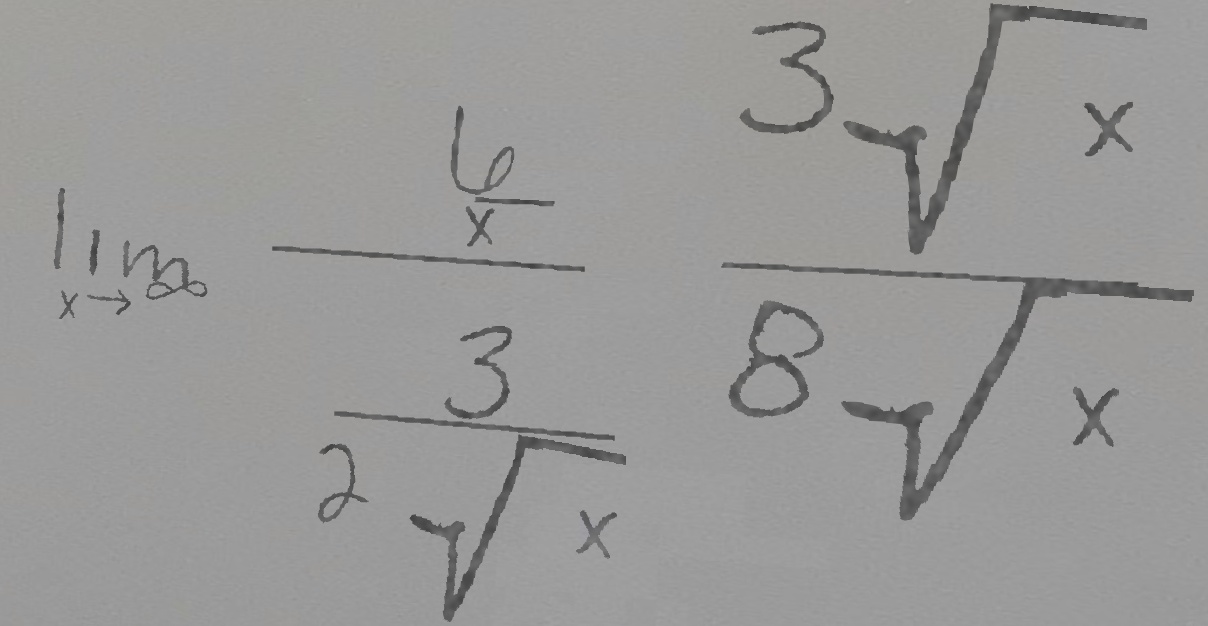 \lim_{x \to \infty} \frac{\frac{6}{x}}{\frac{3}{2\sqrt{x}}} \frac{3\sqrt{x}}{8\sqrt{x}}